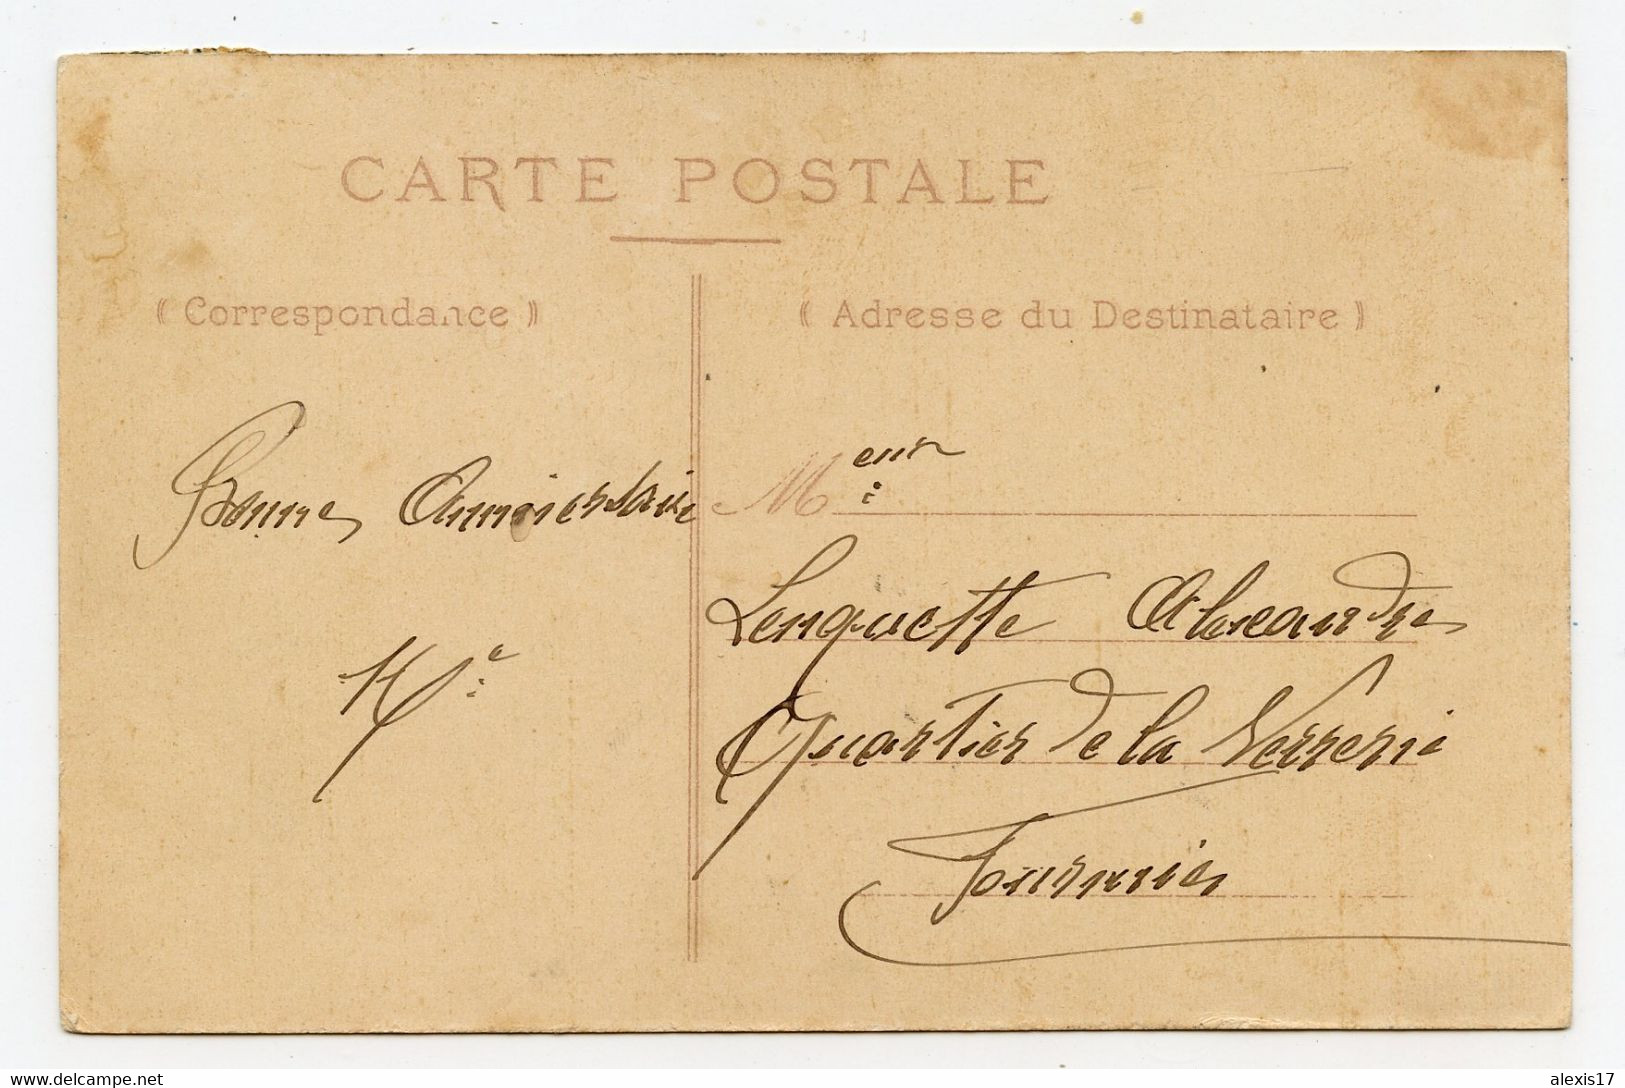 CARTE POSTALE
⸨ Correspondance ⸩
⸨ Adresse du Destinataire ⸩
Bonne Anniversaire
Meur
Lenquette Alexandre
Quartier de la Verrerie
Fourmies
delcampe.net
alexis17